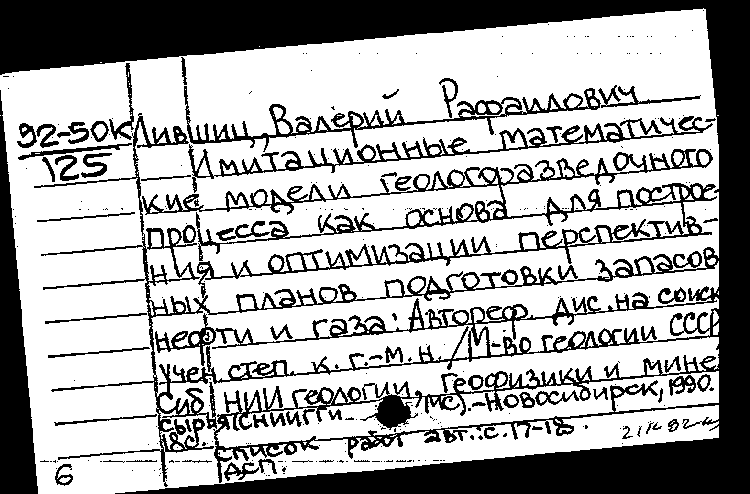 92-50К Лившиц, Валерий Рафаилович
125 Имитационные математичес-
кие модели геологоразведочного
процесса как основа для построе-
ния и оптимизации перспектив-
ных планов подготовки запасов
нефти и газа: Автореф. дис. на соиск
учен. степ. к. г.-м. н. / М-во геологии СССР
Сиб НИИ геологии, геофизики и мине
сырья (СНИИГГи МС). - Новосибирск, 1990.
18с.
список работ авт.: с. 17-18.
6 ДСП.